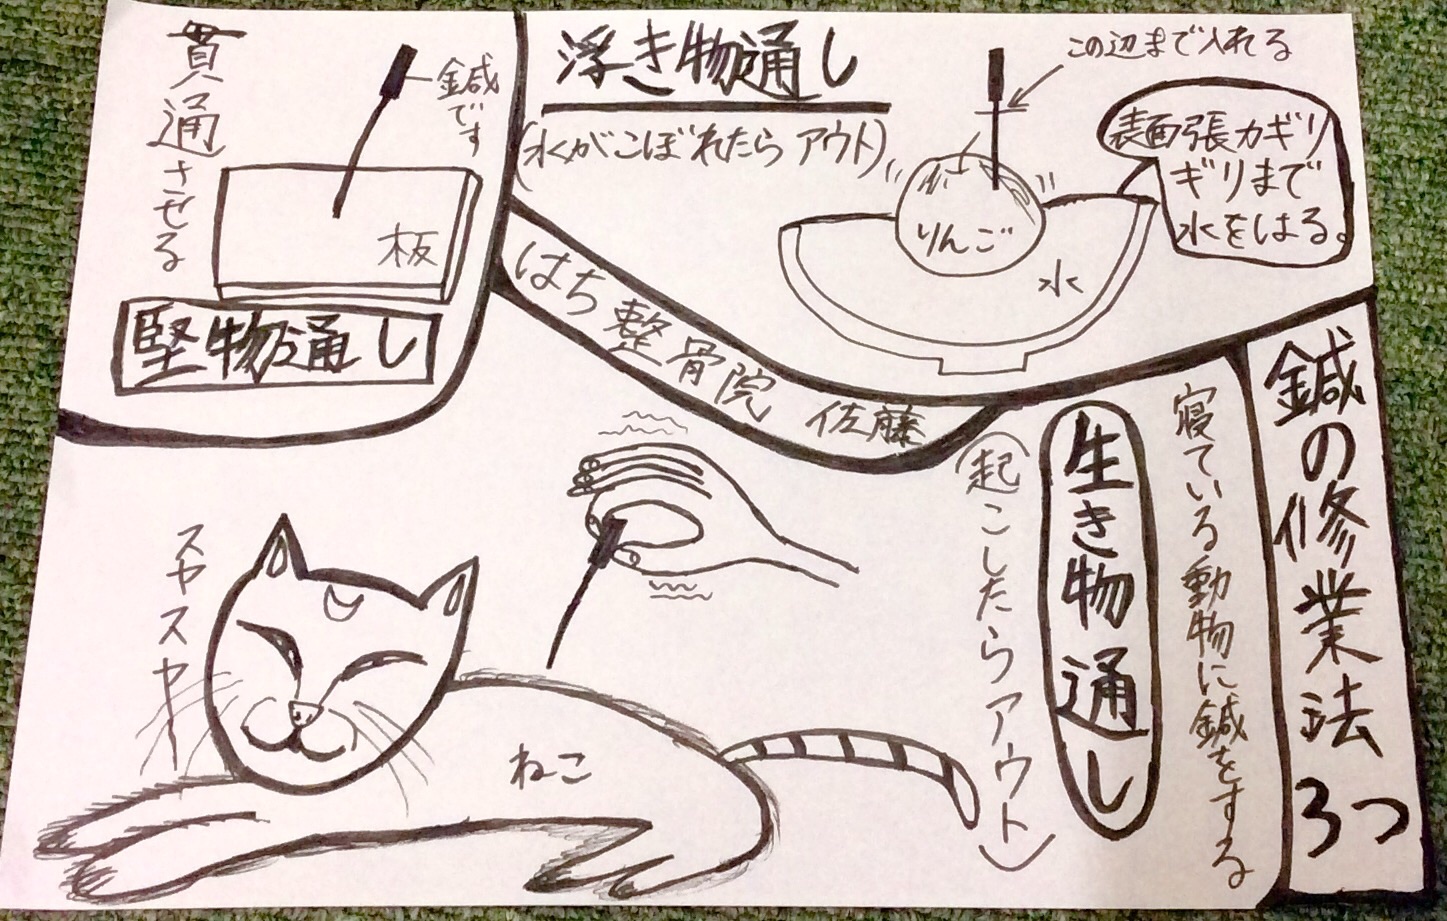 鍼の修業法
3つ
貫通させる
鍼です
板
堅物通し
浮き物通し
(水がこぼれたらアウト)
この辺まで入れる
表面張力ギリ
ギリまで
水をはる。
りんご
水
はち整骨院 佐藤
寝ている動物に鍼をする
生き物通し
(起こしたらアウト)
スヤスヤ
ねこ